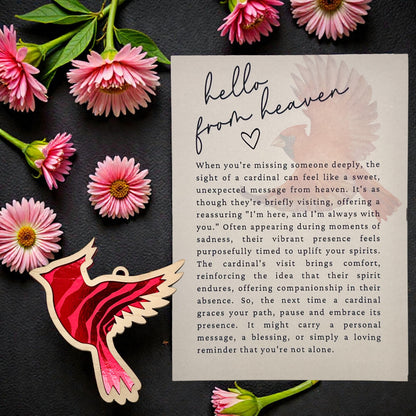 hello
from heaven
When you're missing someone deeply, the
sight of a cardinal can feel like a sweet,
unexpected message from heaven. It's as
though they're briefly visiting, offering a
reassuring "I'm here, and I'm always with
you." Often appearing during moments of
sadness, their vibrant presence feels
purposefully timed to uplift your spirits.
The cardinal's visit brings comfort,
reinforcing the idea that their spirit
endures, offering companionship in their
absence. So, the next time a cardinal
graces your path, pause and embrace its
presence. It might carry a personal
message, a blessing, or simply a loving
reminder that you're not alone.